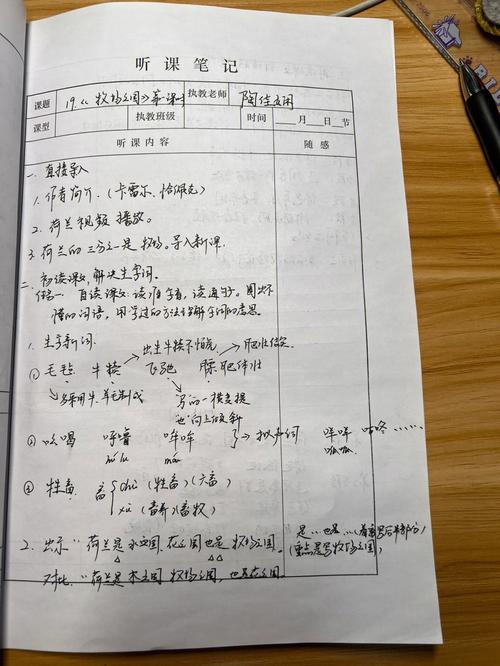 听课笔记
课题 19.《牧场之国》第一课时 执教老师 陶佳
课型 执教班级 时间 月 日 节
听课内容 随感
一、直接导入
1. 作者简介.(卡雷尔·恰佩克)
2. 荷兰视频 播放。
3. 荷兰的三分之一是牧场。导入新课.
二、初读课文,解决生字词.
任务一 自读课文.读准字音,读通句子。圈出不
懂的词语,用学过的方法理解字词的意思.
1. 生字新词.
① 毛毡 牛犊 → 出生牛犊不怕虎 飞驰 膘肥体壮 → 肥壮
多采用牛、羊毛制成
"也"向上倾斜
② 吆喝 哞哞 → 拟声词 咩咩 呱呱 咕咚……
mōu
③ 牲畜. 畜 chù (牲畜)(六畜)
xù (畜养)(畜牧)
2. 出示"荷兰是水之国,花之国,也是牧场之国。 是…也是…(着重写后半部分)
(重点是写牧场之国)
对比:"荷兰是水之国,牧场之国,也是花之国。